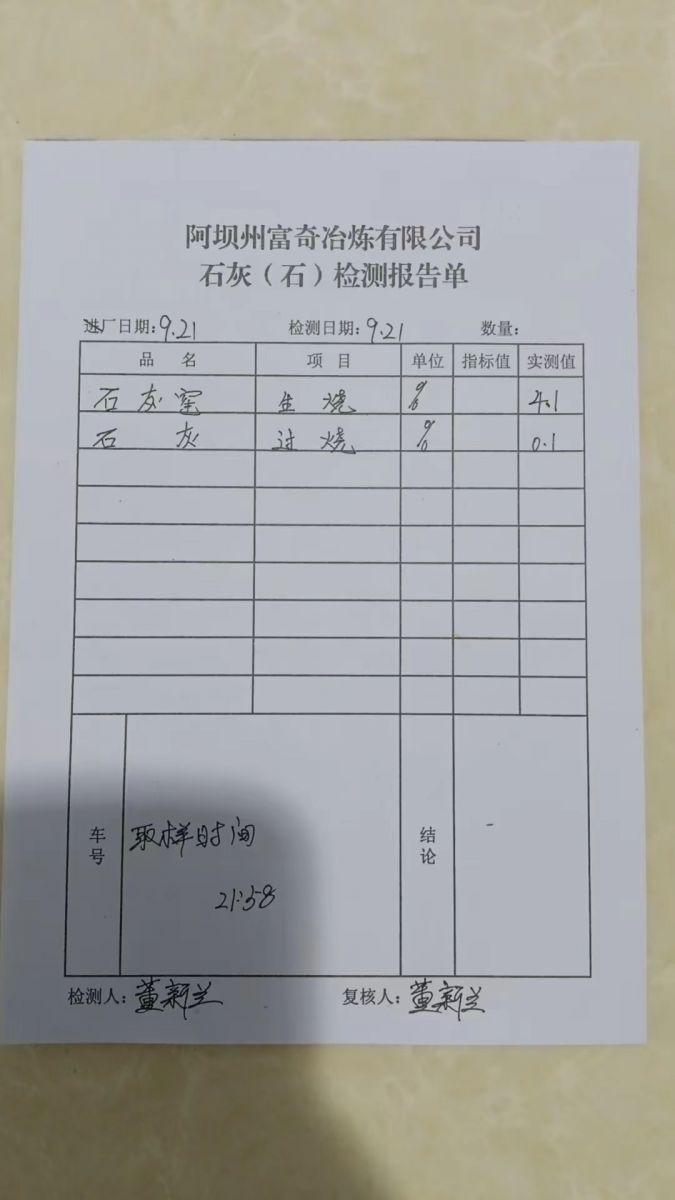 阿坝州富奇冶炼有限公司
石灰（石）检测报告单
进厂日期：9.21 检测日期：9.21 数量：
品 名 项 目 单位 指标值 实测值
石灰窑 生烧 % 4.1
石灰 过烧 % 0.1
车号 取样时间 结论
21:58
检测人：董新兰 复核人：董新兰